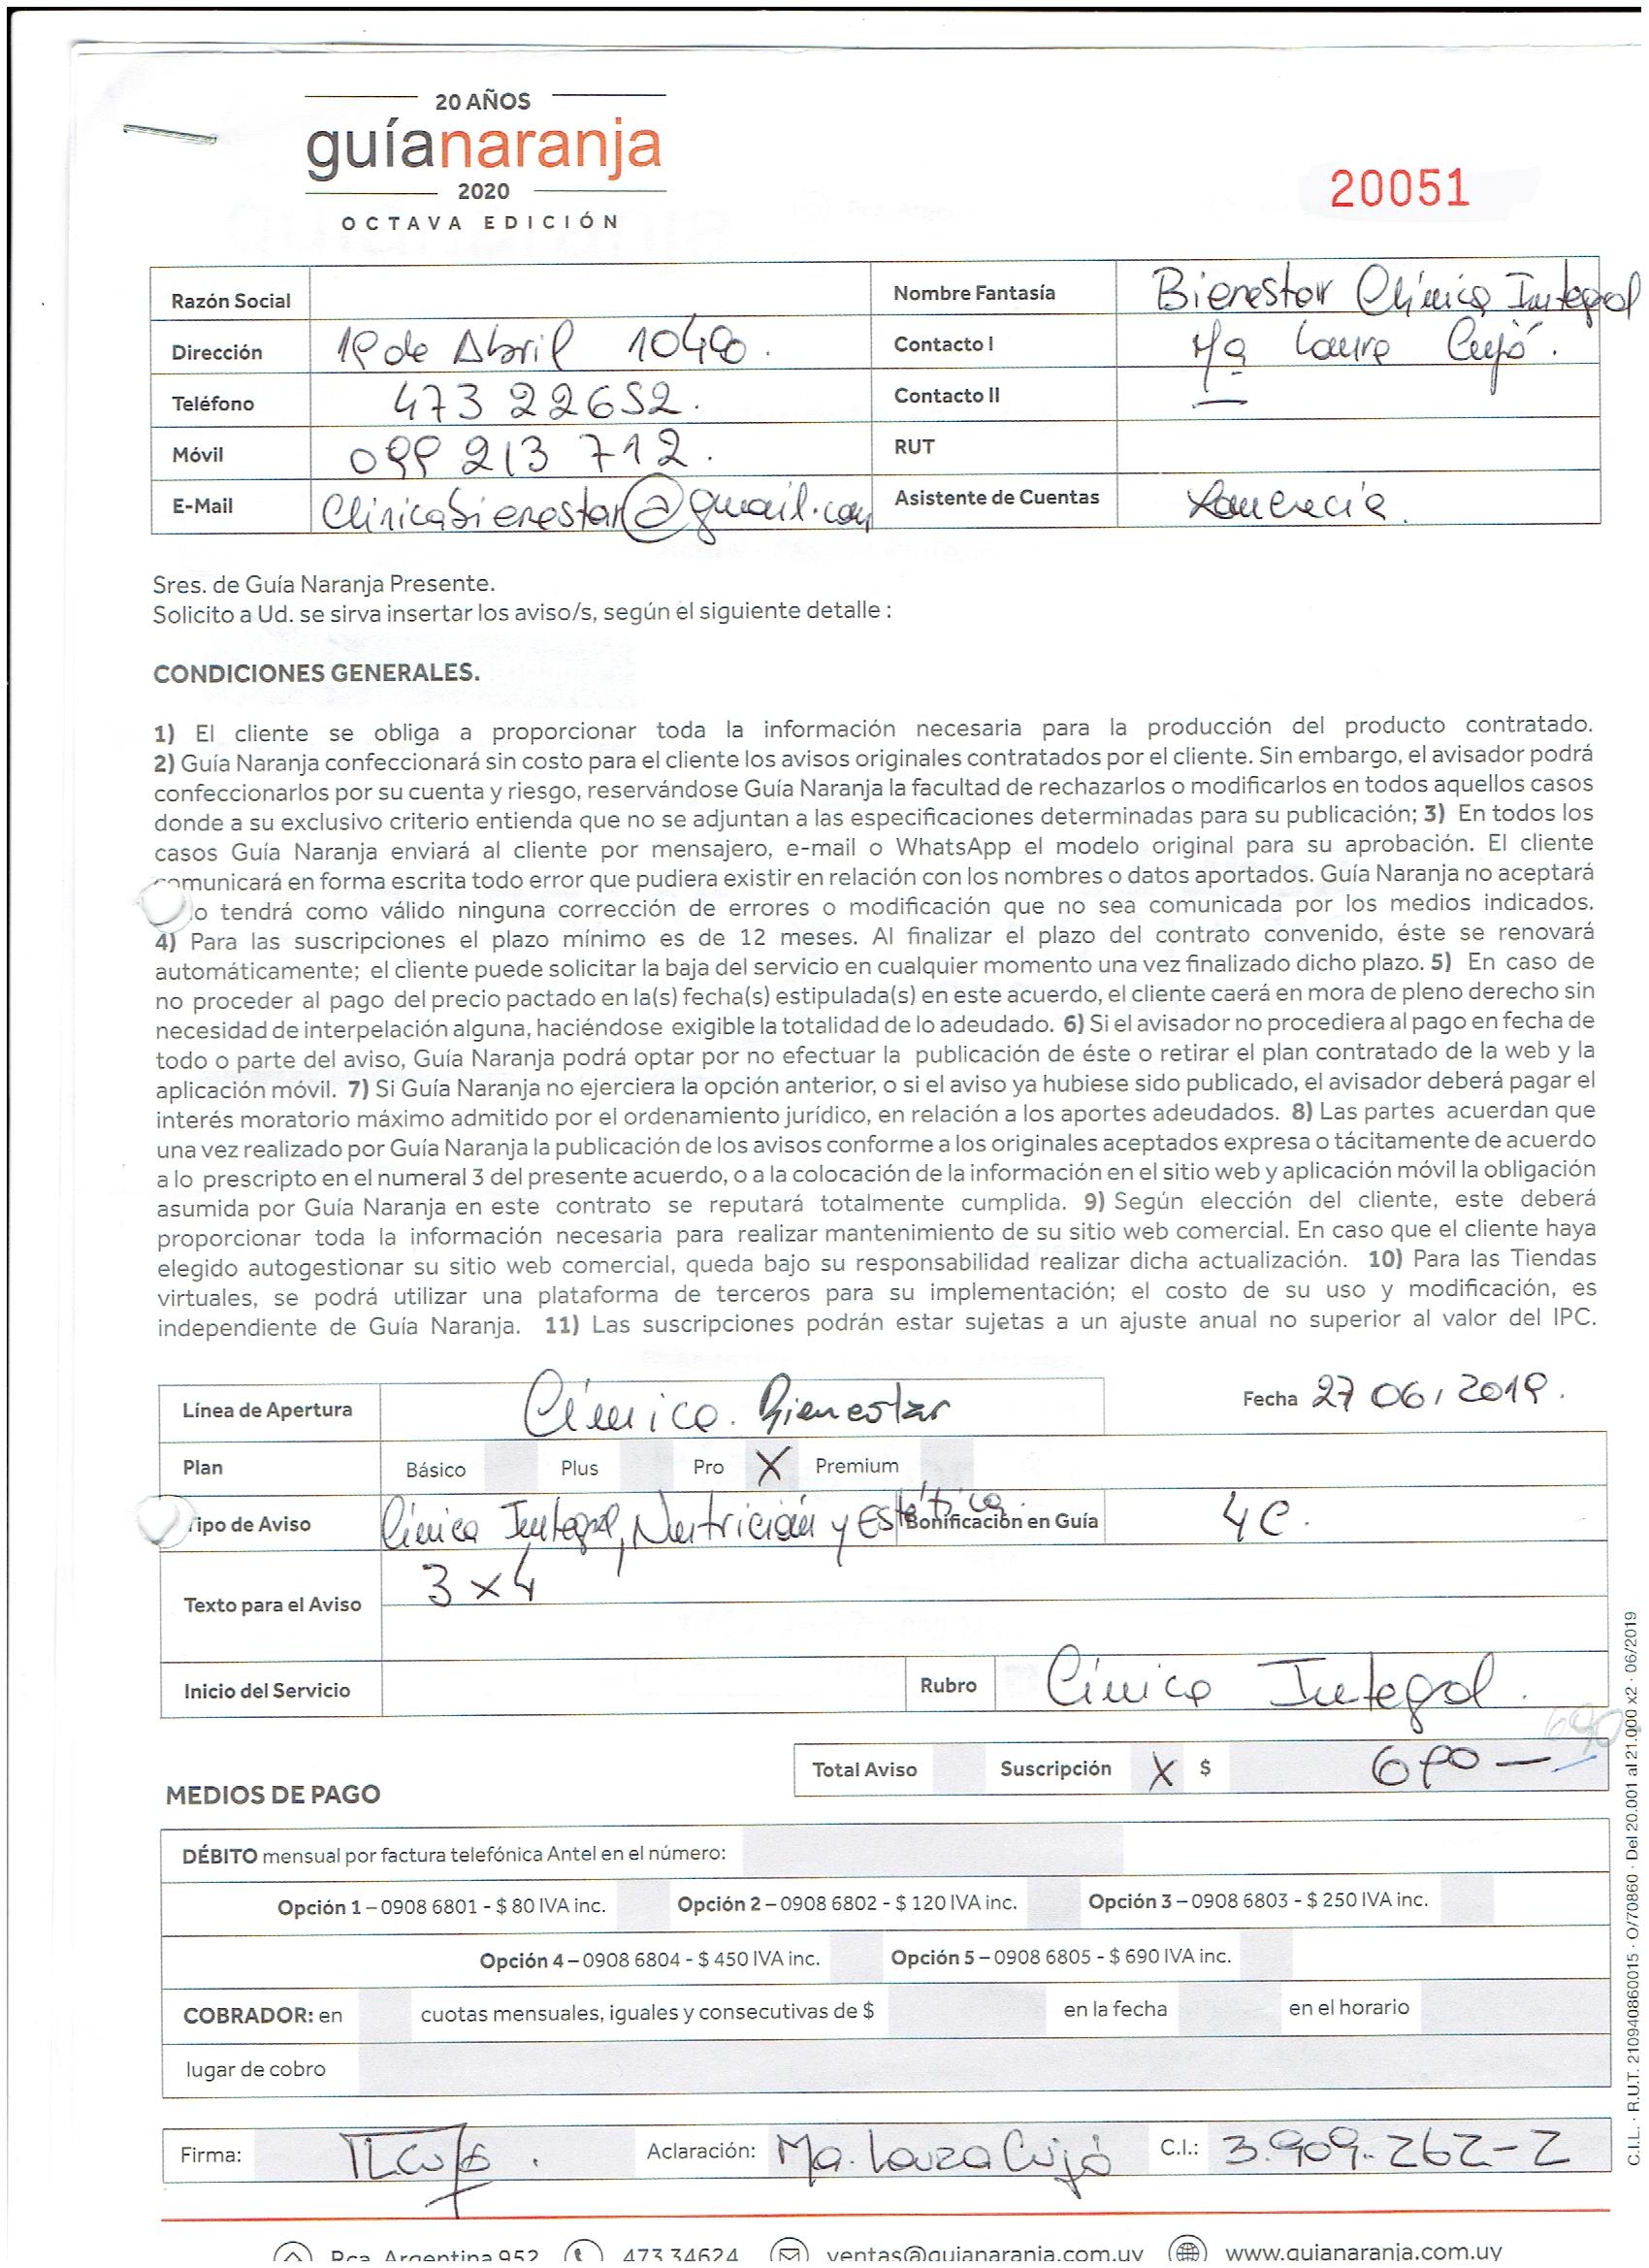 20 AÑOS
guíanaranja
2020
OCTAVA EDICIÓN
20051
Razón Social
Nombre Fantasía Bienestar Clínica Integral
Dirección 19 de Abril 1040.
Contacto I Mª Laura Cujó.
Teléfono 473 22652.
Contacto II —
Móvil 099 213 712.
RUT
E-Mail Clinicabienestar@gmail.com
Asistente de Cuentas
Sres. de Guía Naranja Presente.
Solicito a Ud. se sirva insertar los aviso/s, según el siguiente detalle :
CONDICIONES GENERALES.
1) El cliente se obliga a proporcionar toda la información necesaria para la producción del producto contratado.
2) Guía Naranja confeccionará sin costo para el cliente los avisos originales contratados por el cliente. Sin embargo, el avisador podrá
confeccionarlos por su cuenta y riesgo, reservándose Guía Naranja la facultad de rechazarlos o modificarlos en todos aquellos casos
donde a su exclusivo criterio entienda que no se adjuntan a las especificaciones determinadas para su publicación; 3) En todos los
casos Guía Naranja enviará al cliente por mensajero, e-mail o WhatsApp el modelo original para su aprobación. El cliente
comunicará en forma escrita todo error que pudiera existir en relación con los nombres o datos aportados. Guía Naranja no aceptará
o tendrá como válido ninguna corrección de errores o modificación que no sea comunicada por los medios indicados.
4) Para las suscripciones el plazo mínimo es de 12 meses. Al finalizar el plazo del contrato convenido, éste se renovará
automáticamente; el cliente puede solicitar la baja del servicio en cualquier momento una vez finalizado dicho plazo. 5) En caso de
no proceder al pago del precio pactado en la(s) fecha(s) estipulada(s) en este acuerdo, el cliente caerá en mora de pleno derecho sin
necesidad de interpelación alguna, haciéndose exigible la totalidad de lo adeudado. 6) Si el avisador no procediera al pago en fecha de
todo o parte del aviso, Guía Naranja podrá optar por no efectuar la publicación de éste o retirar el plan contratado de la web y la
aplicación móvil. 7) Si Guía Naranja no ejerciera la opción anterior, o si el aviso ya hubiese sido publicado, el avisador deberá pagar el
interés moratorio máximo admitido por el ordenamiento jurídico, en relación a los aportes adeudados. 8) Las partes acuerdan que
una vez realizado por Guía Naranja la publicación de los avisos conforme a los originales aceptados expresa o tácitamente de acuerdo
a lo prescripto en el numeral 3 del presente acuerdo, o a la colocación de la información en el sitio web y aplicación móvil la obligación
asumida por Guía Naranja en este contrato se reputará totalmente cumplida. 9) Según elección del cliente, este deberá
proporcionar toda la información necesaria para realizar mantenimiento de su sitio web comercial. En caso que el cliente haya
elegido autogestionar su sitio web comercial, queda bajo su responsabilidad realizar dicha actualización. 10) Para las Tiendas
virtuales, se podrá utilizar una plataforma de terceros para su implementación; el costo de su uso y modificación, es
independiente de Guía Naranja. 11) Las suscripciones podrán estar sujetas a un ajuste anual no superior al valor del IPC.
Línea de Apertura Clínica. Bienestar
Fecha 27 06, 2019.
Plan Básico Plus Pro X Premium
Tipo de Aviso Clínica Integral, Nutrición y Estética.
Bonificación en Guía 4C.
Texto para el Aviso 3x4
Inicio del Servicio
Rubro Clínica Integral.
690
Total Aviso Suscripción X $ 690 —
MEDIOS DE PAGO
DÉBITO mensual por factura telefónica Antel en el número:
Opción 1 – 0908 6801 - $ 80 IVA inc. Opción 2 – 0908 6802 - $ 120 IVA inc. Opción 3 – 0908 6803 - $ 250 IVA inc.
Opción 4 – 0908 6804 - $ 450 IVA inc. Opción 5 – 0908 6805 - $ 690 IVA inc.
COBRADOR: en cuotas mensuales, iguales y consecutivas de $ en la fecha en el horario
lugar de cobro
Firma: Aclaración: Ma. Laura Cujó C.I.: 3.909.262-2
Rca. Argentina 952 473 34624 ventas@guianaranja.com.uy www.guianaranja.com.uy
C.I.L. · R.U.T. 210940860015 · O/70860 · Del 20.001 al 21.000 x2 · 06/2019